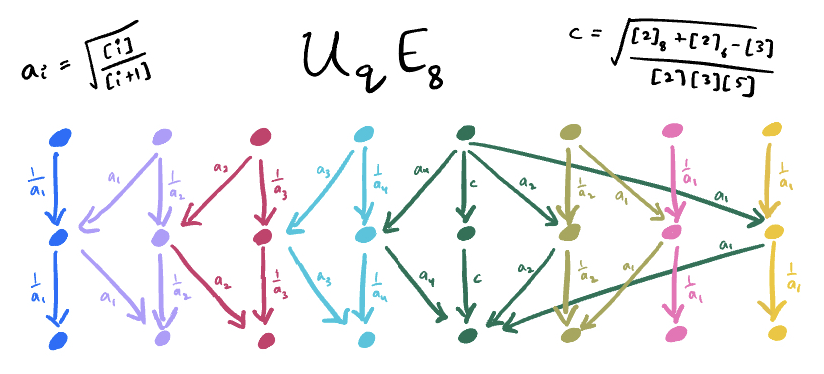 a_i = √([i]/[i+1])
U_q E_8
c = √(([2]_8 + [2]_6 - [3])/([2][3][5]))
1/a_1 a_1 1/a_2 a_2 1/a_3 a_3 1/a_4 a_4 c a_2 1/a_2 a_1 1/a_1 a_1 1/a_1
1/a_1 a_1 1/a_2 a_2 1/a_3 a_3 1/a_4 a_4 c a_2 1/a_2 a_1 1/a_1 a_1 1/a_1